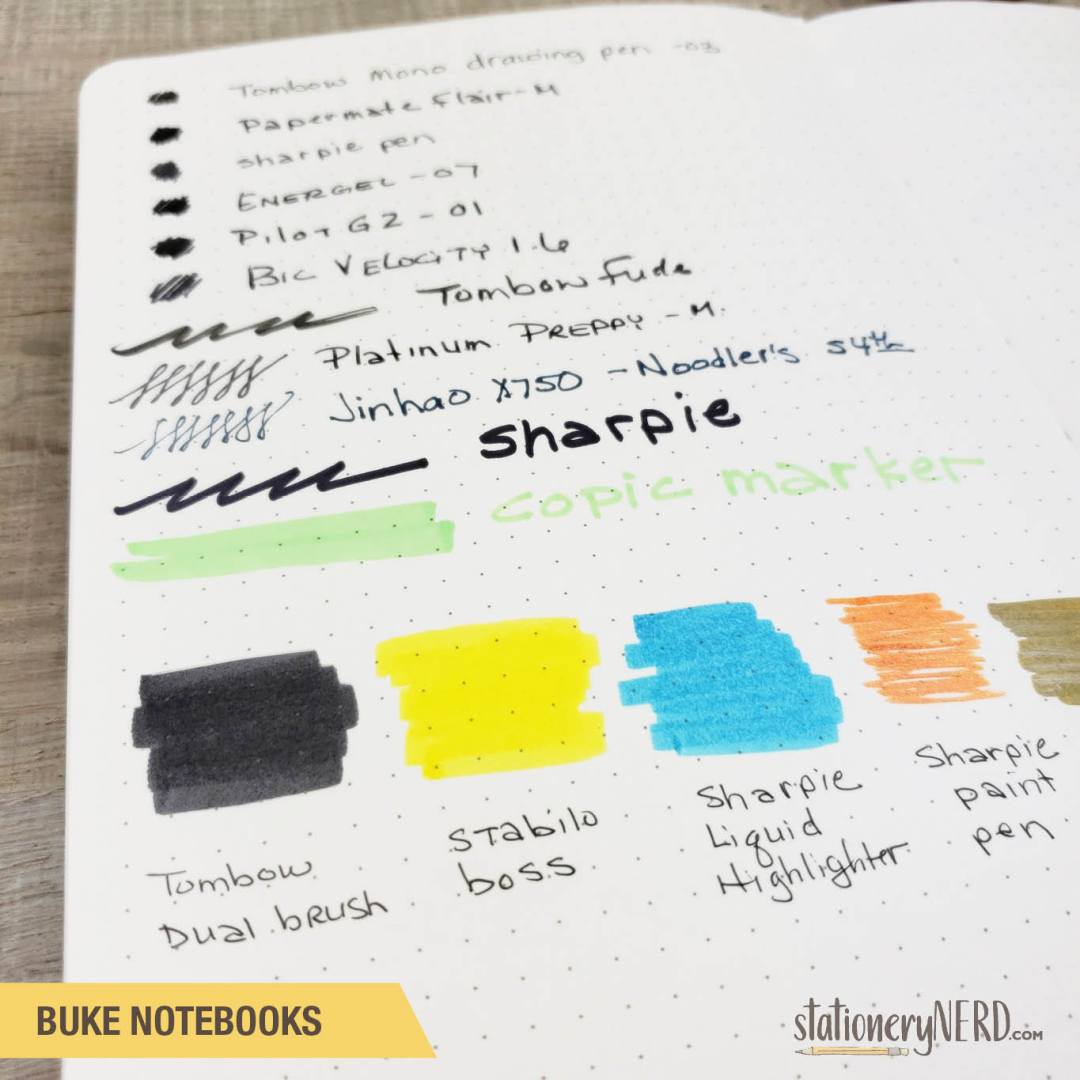 Tombow mono drawing pen -03
Papermate Flair-M
sharpie pen
ENERGEL -07
Pilot G2 - 01
BIC VELOCITY 1.6
Tombow Fude
Platinum PREPPY - M.
Jinhao X750 - Noodler's 54th
sharpie
copic marker
Tombow
Dual brush
Stabilo
boss
Sharpie
Liquid
Highlighter
Sharpie
paint
pen
BUKE NOTEBOOKS
stationeryNERD.COM